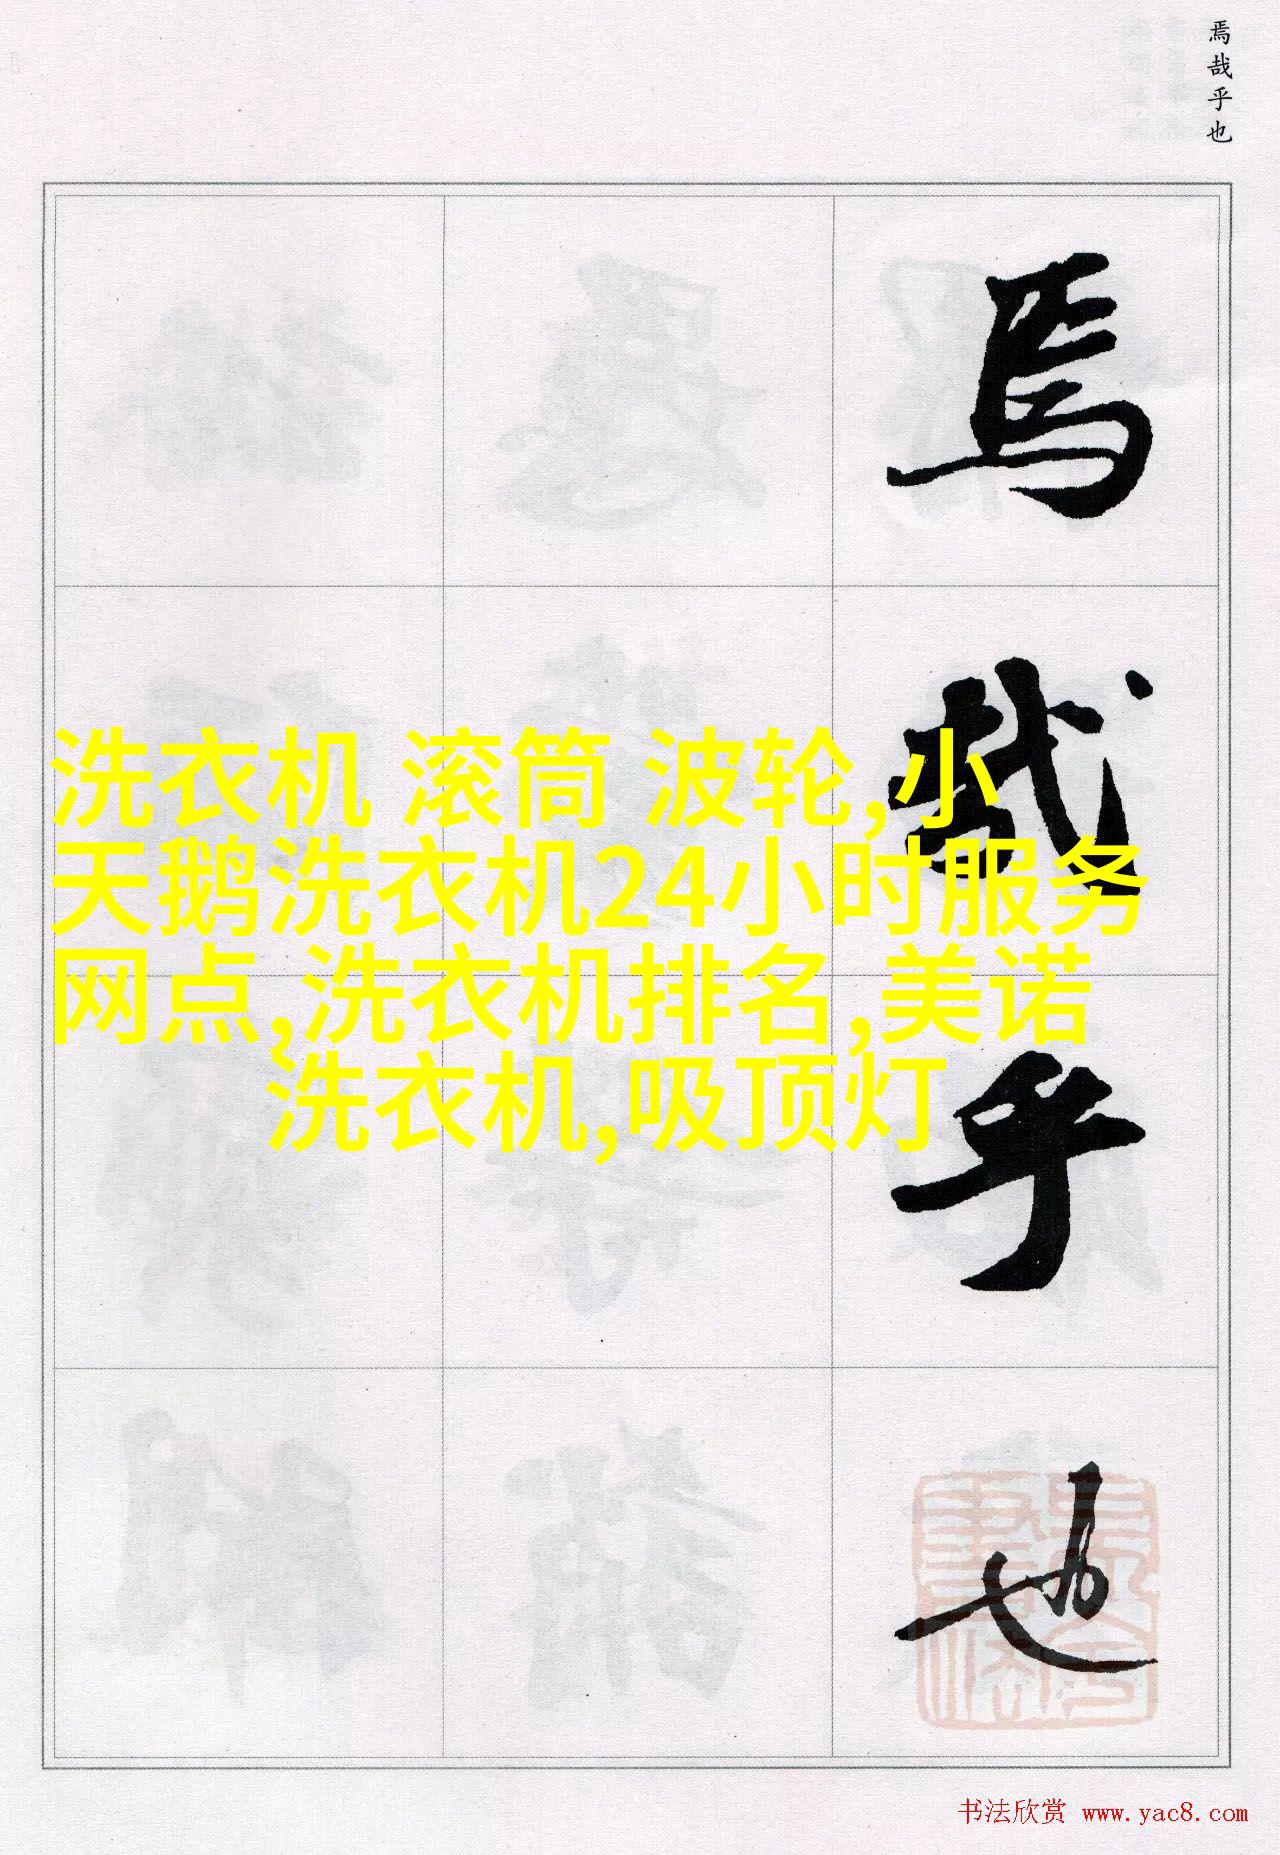 焉哉乎也
焉
哉
乎
也
洗衣机 滚筒 波轮,小
天鹅洗衣机24小时服务
网点,洗衣机排名,美诺
洗衣机,吸顶灯
书法欣赏 www.yac8.com